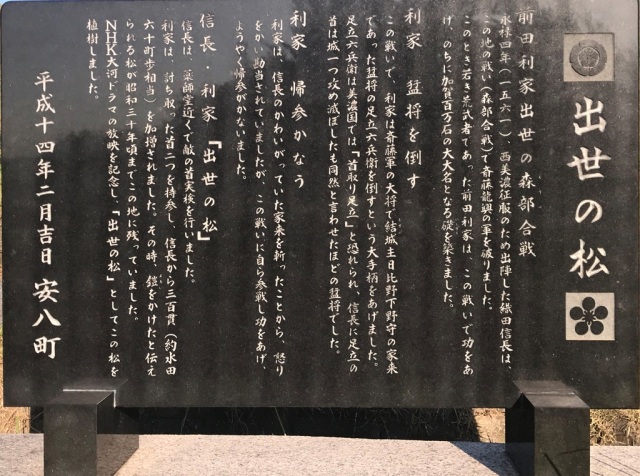 出世の松
前田利家出世の森部合戦
永禄四年(一五六一)西美濃征服のため出陣した織田信長は、
この地の戦い(森部合戦)で斎藤龍興の軍を破りました。
このとき若き荒武者であった前田利家は、この戦いで功をあ
げ、のちに加賀百万石の大大名となる礎を築きました。
利家 猛将を倒す
この戦いで、利家は斎藤軍の大将で結城主日比野下野守の家来
であった猛将の足立六兵衛を倒すという大手柄をあげました。
足立六兵衛は美濃国では「首取り足立」と恐れられ、信長に足立の
首は城一つ攻め滅ぼしたも同然と言わせたほどの猛将でした。
利家 帰参かなう
利家は、信長のかわいがっていた家来を斬ったことから、怒り
をかい勘当されていましたが、この戦いに自ら参戦し功をあげ、
ようやく帰参がかないました。
信長・利家「出世の松」
信長は、薬師堂近くで敵の首実検を行いました。
利家は、討ち取った首二つを持参し、信長から三百貫(約水田
六十町歩相当)を加増されました。その時、鎧をかけたと伝え
られる松が昭和三十年頃までこの地に残っていました。
NHK大河ドラマの放映を記念し、「出世の松」としてこの松を
植樹しました。
平成十四年二月吉日 安八町